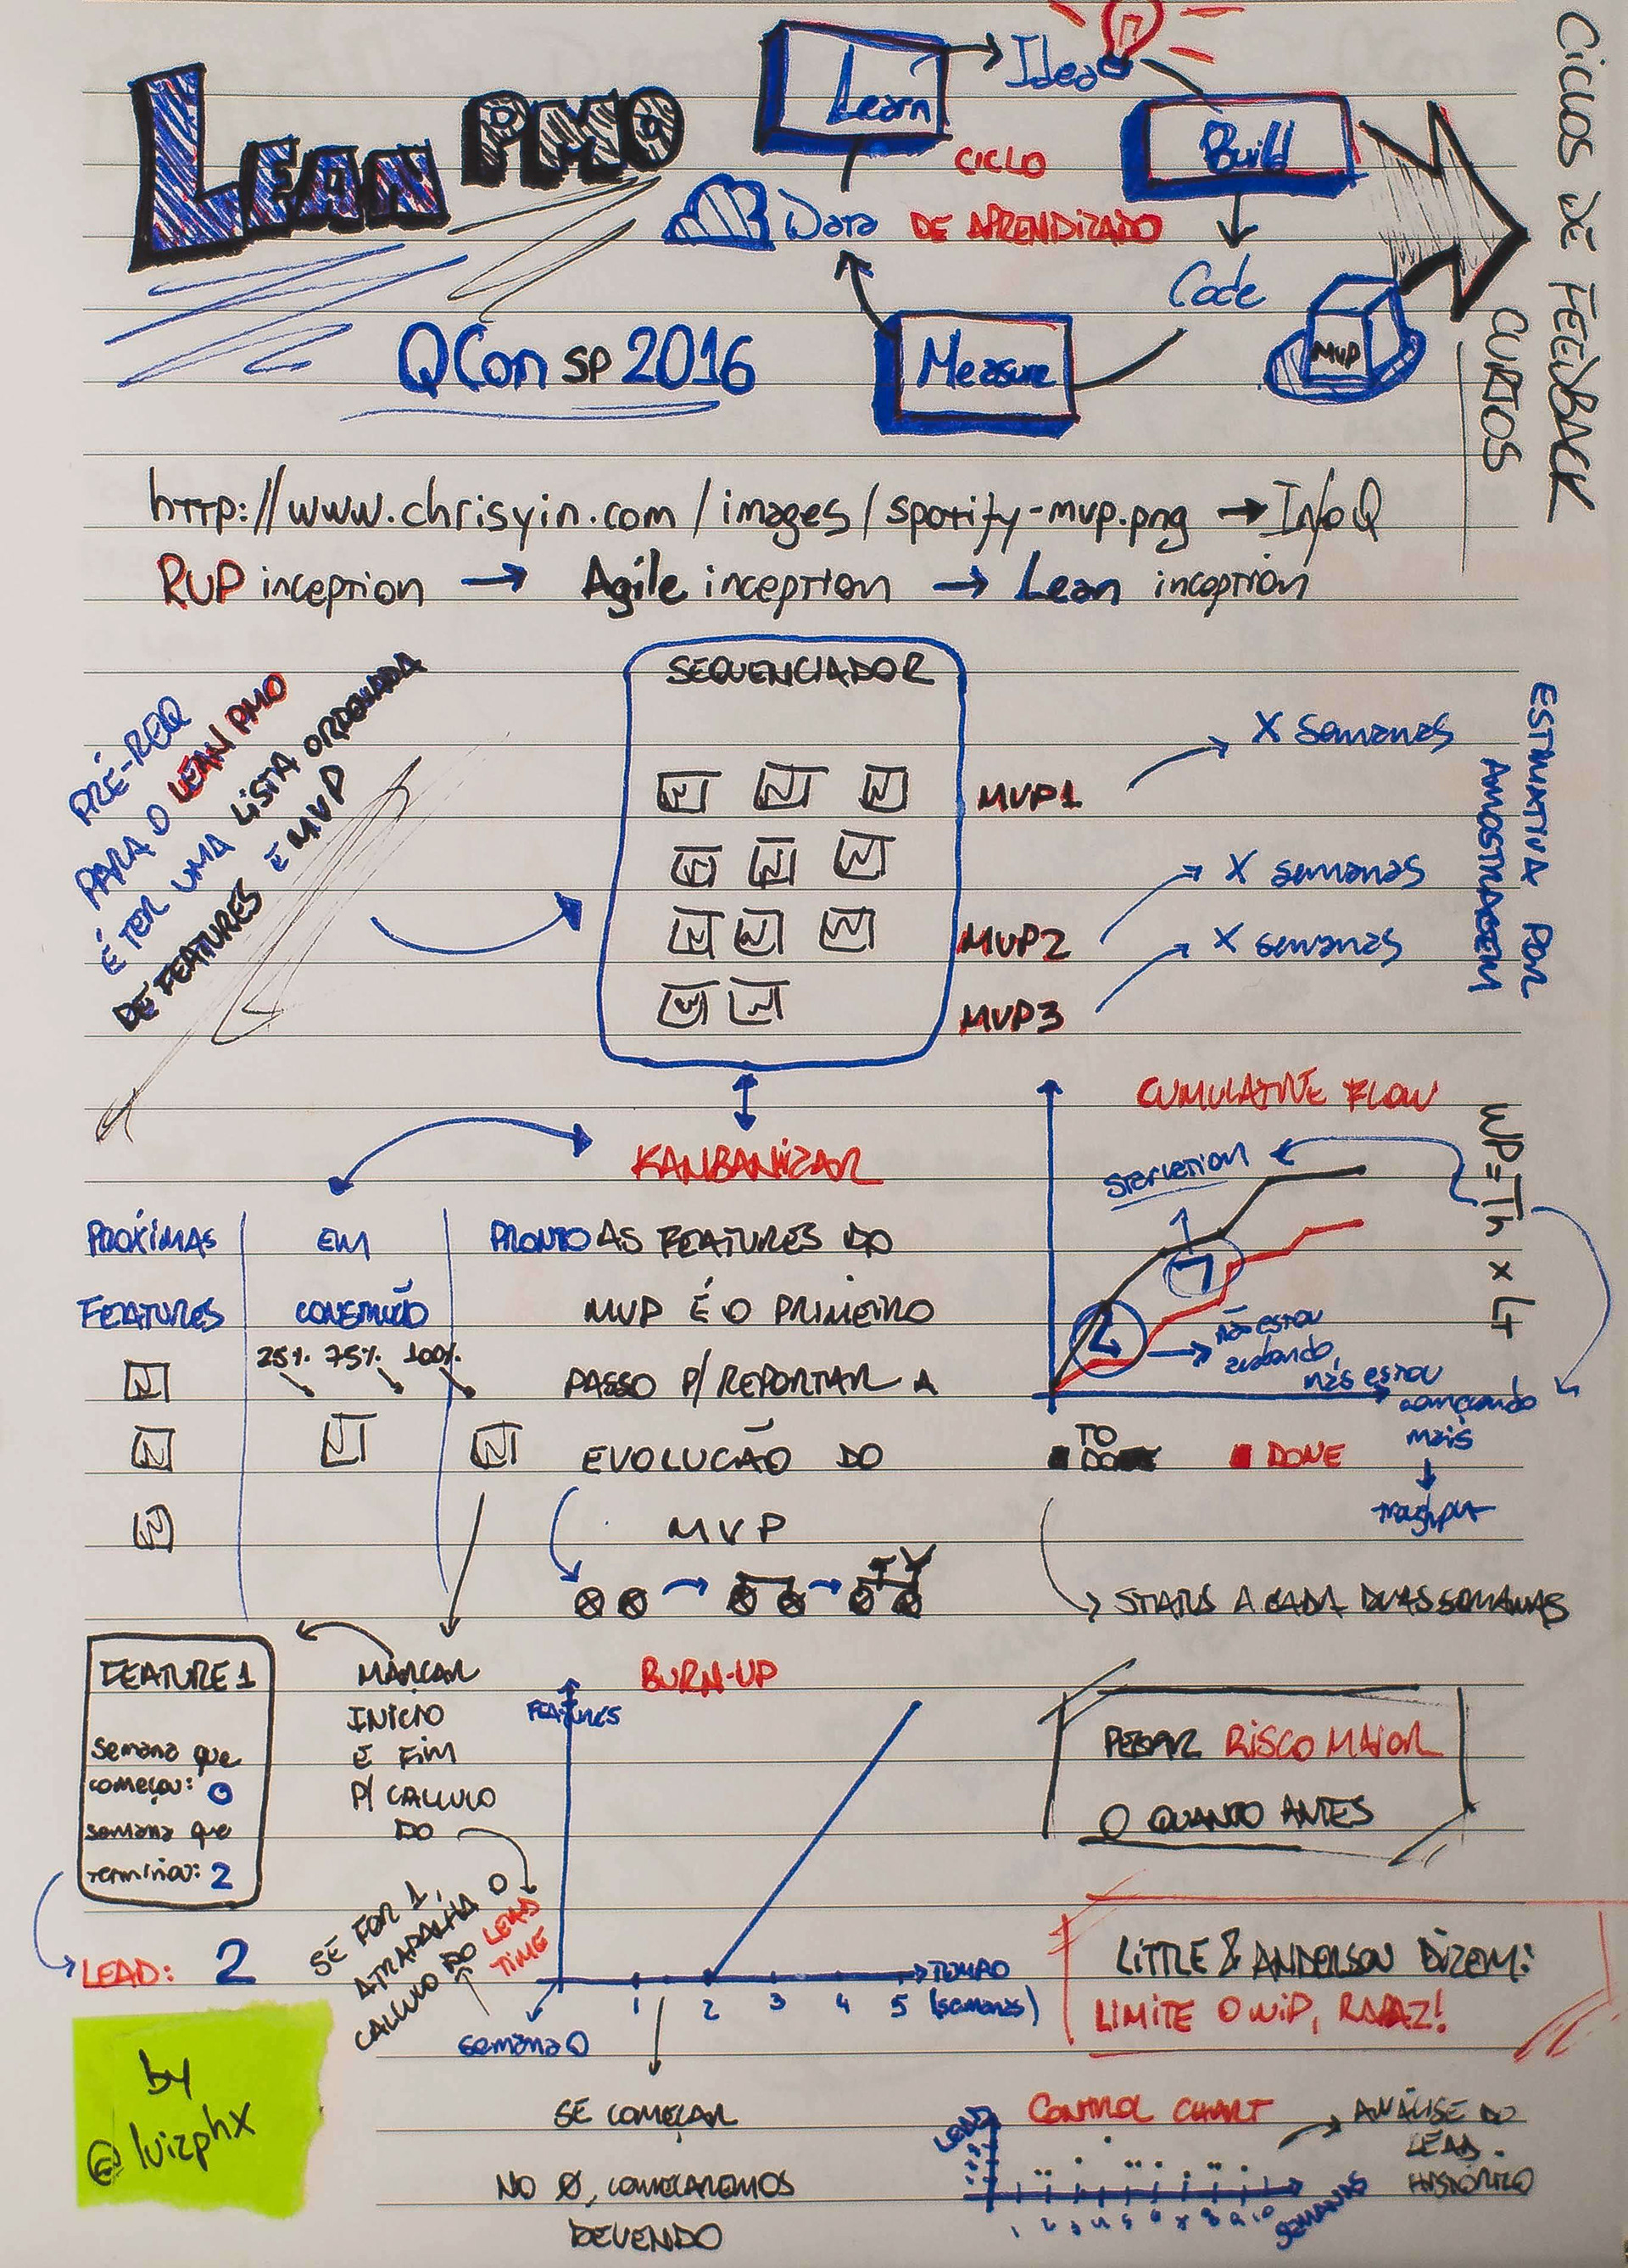 LEAN PMO
QCon SP 2016
Learn
Idea
Build
Code
Measure
Data
CICLO
DE APRENDIZADO
MVP
CICLOS DE FEEDBACK
CURTOS
http://www.chrisyin.com/images/spotify-mvp.png → InfoQ
RUP inception → Agile inception → Lean inception
PRÉ-REQ
PARA O LEAN PMO
É TER UMA LISTA ORDENADA
DE FEATURES E MVP
SEQUENCIADOR
MVP1
X semanas
MVP2
X semanas
MVP3
X semanas
ESTIMATIVA POR
AMOSTRAGEM
KANBANIZAR
PRÓXIMAS
FEATURES
EM
CONSTRUÇÃO
25% 75% 100%
PRONTO
AS FEATURES DO
MVP É O PRIMEIRO
PASSO P/ REPORTAR A
EVOLUÇÃO DO
MVP
CUMULATIVE FLOW
starvation
não estou
acabando,
mas estou
começando
mais
WIP = Th x LT
TO
DO
DONE
STATUS A CADA DUAS SEMANAS
FEATURE 1
semana que
começou: 0
semana que
terminou: 2
LEAD: 2
MARCAR
INÍCIO
E FIM
P/ CALCULO
DO
LEAD
TIME
SE FOR 1,
ATRAPALHA O
CALCULO DO
BURN-UP
FEATURES
1 2 3 4 5
TEMPO
(semanas)
semana 0
SE COMEÇAR
NO Ø, COMEÇAREMOS
DEVENDO
PEGAR RISCO MAIOR
O QUANTO ANTES
LITTLE & ANDERSON DIZEM:
LIMITE O WIP, RAPAZ!
CONTROL CHART
LEAD
SEMANAS
ANÁLISE DO
LEAD
HISTÓRICO
by
@luizphx